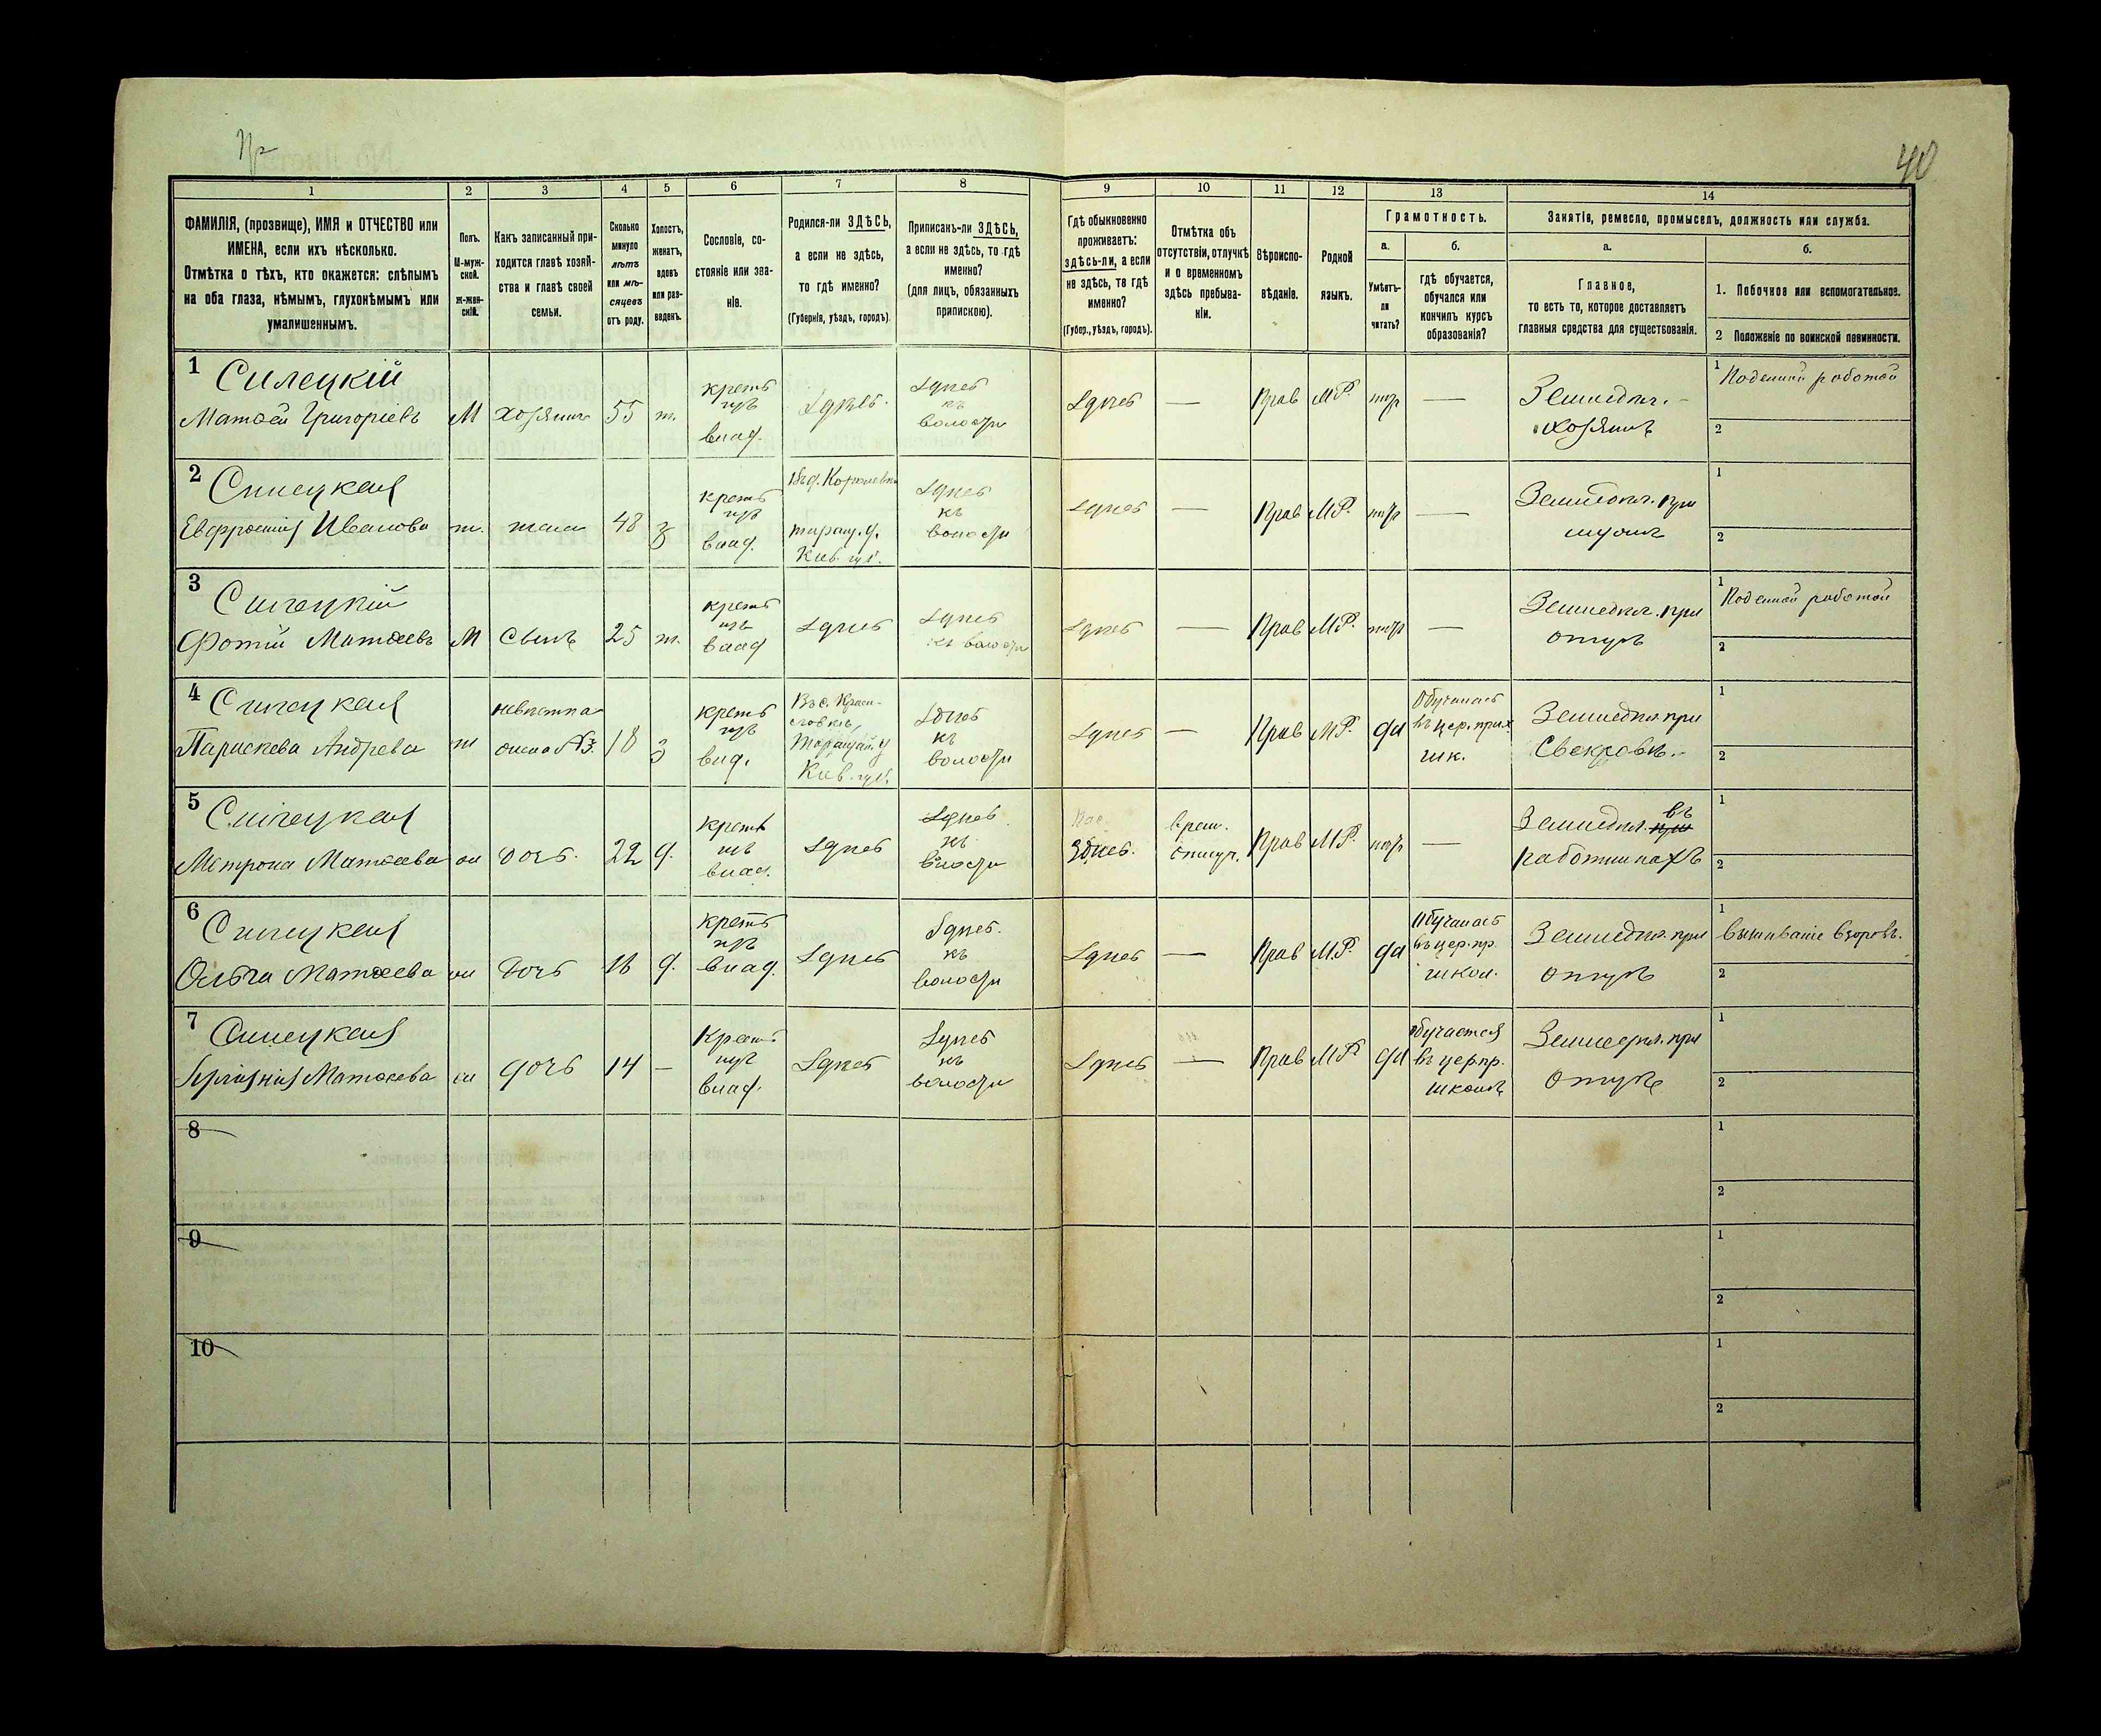 40
1 2 3 4 5 6 7 8 9 10 11 12 13 14
ФАМИЛІЯ, (прозвище), ИМЯ и ОТЧЕСТВО или
ИМЕНА, если ихъ нѣсколько.
Отмѣтка о тѣхъ, кто окажется: слѣпымъ
на оба глаза, нѣмымъ, глухонѣмымъ или
умалишеннымъ.
Полъ.
М-муж-
ской.
ж-жен-
скій.
Какъ записанный при-
ходится главѣ хозяй-
ства и главѣ своей
семьи.
Сколько
минуло
лѣтъ
или мѣ-
сяцевъ
отъ роду.
Холостъ,
женатъ,
вдовъ
или раз-
веденъ.
Сословіе, со-
стояніе или зва-
ніе.
Родился-ли ЗДѢСЬ,
а если не здѣсь,
то гдѣ именно?
(Губернія, уѣздъ, городъ).
Приписанъ-ли ЗДѢСЬ,
а если не здѣсь, то гдѣ
именно?
(для лицъ, обязанныхъ
припискою).
Гдѣ обыкновенно
проживаетъ:
здѣсь-ли, а если
не здѣсь, то гдѣ
именно?
(Губер., уѣздъ, городъ).
Отмѣтка объ
отсутствіи, отлучкѣ
и о временномъ
здѣсь пребыва-
ніи.
Вѣроиспо-
вѣданіе.
Родной
языкъ.
Грамотность.
а.
Умѣетъ-
ли
читать?
б.
гдѣ обучается,
обучался или
кончилъ курсъ
образованія?
Занятіе, ремесло, промыселъ, должность или служба.
а.
Главное,
то есть то, которое доставляетъ
главныя средства для существованія.
б.
1. Побочное или вспомогательное.
2 Положеніе по воинской повинности.
1
Силецкій
Матѳей Григорьевъ
М
хозяинъ
55
ж.
крест
изъ
влад.
Здѣсь.
Здѣсь
къ
волости
Здѣсь
—
Прав
МР.
нѣт
—
Земледѣл.-
хозяинъ
1 Поденной работой
2
2
Силецкая
Евфросинія Иванова
ж.
жена
48
з
крест
изъ
влад.
таращ. у.
Кіев. губ.
Здѣсь
къ
волости
Здѣсь
—
Прав
МР.
нѣт
—
Земледѣл. при
мужѣ
1
2
3
Силецкій
Фотій Матѳеевъ
М
Сынъ
25
ж.
крест
изъ
влад
Здѣсь
Здѣсь
къ волости
Здѣсь
—
Прав
МР.
нѣт
—
Земледѣл. при
отцѣ
1 Поденной работой
2
4
Силецкая
Параскева Андреева
ж
невѣстка
жена №3.
18
з
крест
изъ
влад.
Таращан. у
Кіев. губ.
Здѣсь
къ
волости
Здѣсь
—
Прав
МР.
да
Обучалась
въ цер. прих
шк.
Земледѣл при
Свекровѣ.-
1
2
5
Силецкая
Матрона Матѳеева
ж
дочь.
22
д.
крест
изъ
влад.
Здѣсь
Здѣсь
къ
волости
Здѣсь.
врем.
отлуч.
Прав
МР.
нѣт
—
Земледѣл. въ
при
работникахъ
1
2
6
Силецкая
Ольга Матѳеева
ж
дочь
16
д.
крест
изъ
влад.
Здѣсь
Здѣсь.
къ
волости
Здѣсь
—
Прав
МР.
да
Обучалась
въ цер. пр.
школ.
Земледѣл. при
отцѣ
1
вышиваніе взоровъ.
2
7
Силецкая
Матѳеева
ж
дочь
14
—
Крест
изъ
влад.
Здѣсь
Здѣсь
къ
волости
Здѣсь
—
Прав
МР
да
обучается
въ цер. пр.
школѣ
Земледѣл. при
отцѣ
1
2
8
1
2
9
1
2
10
1
2